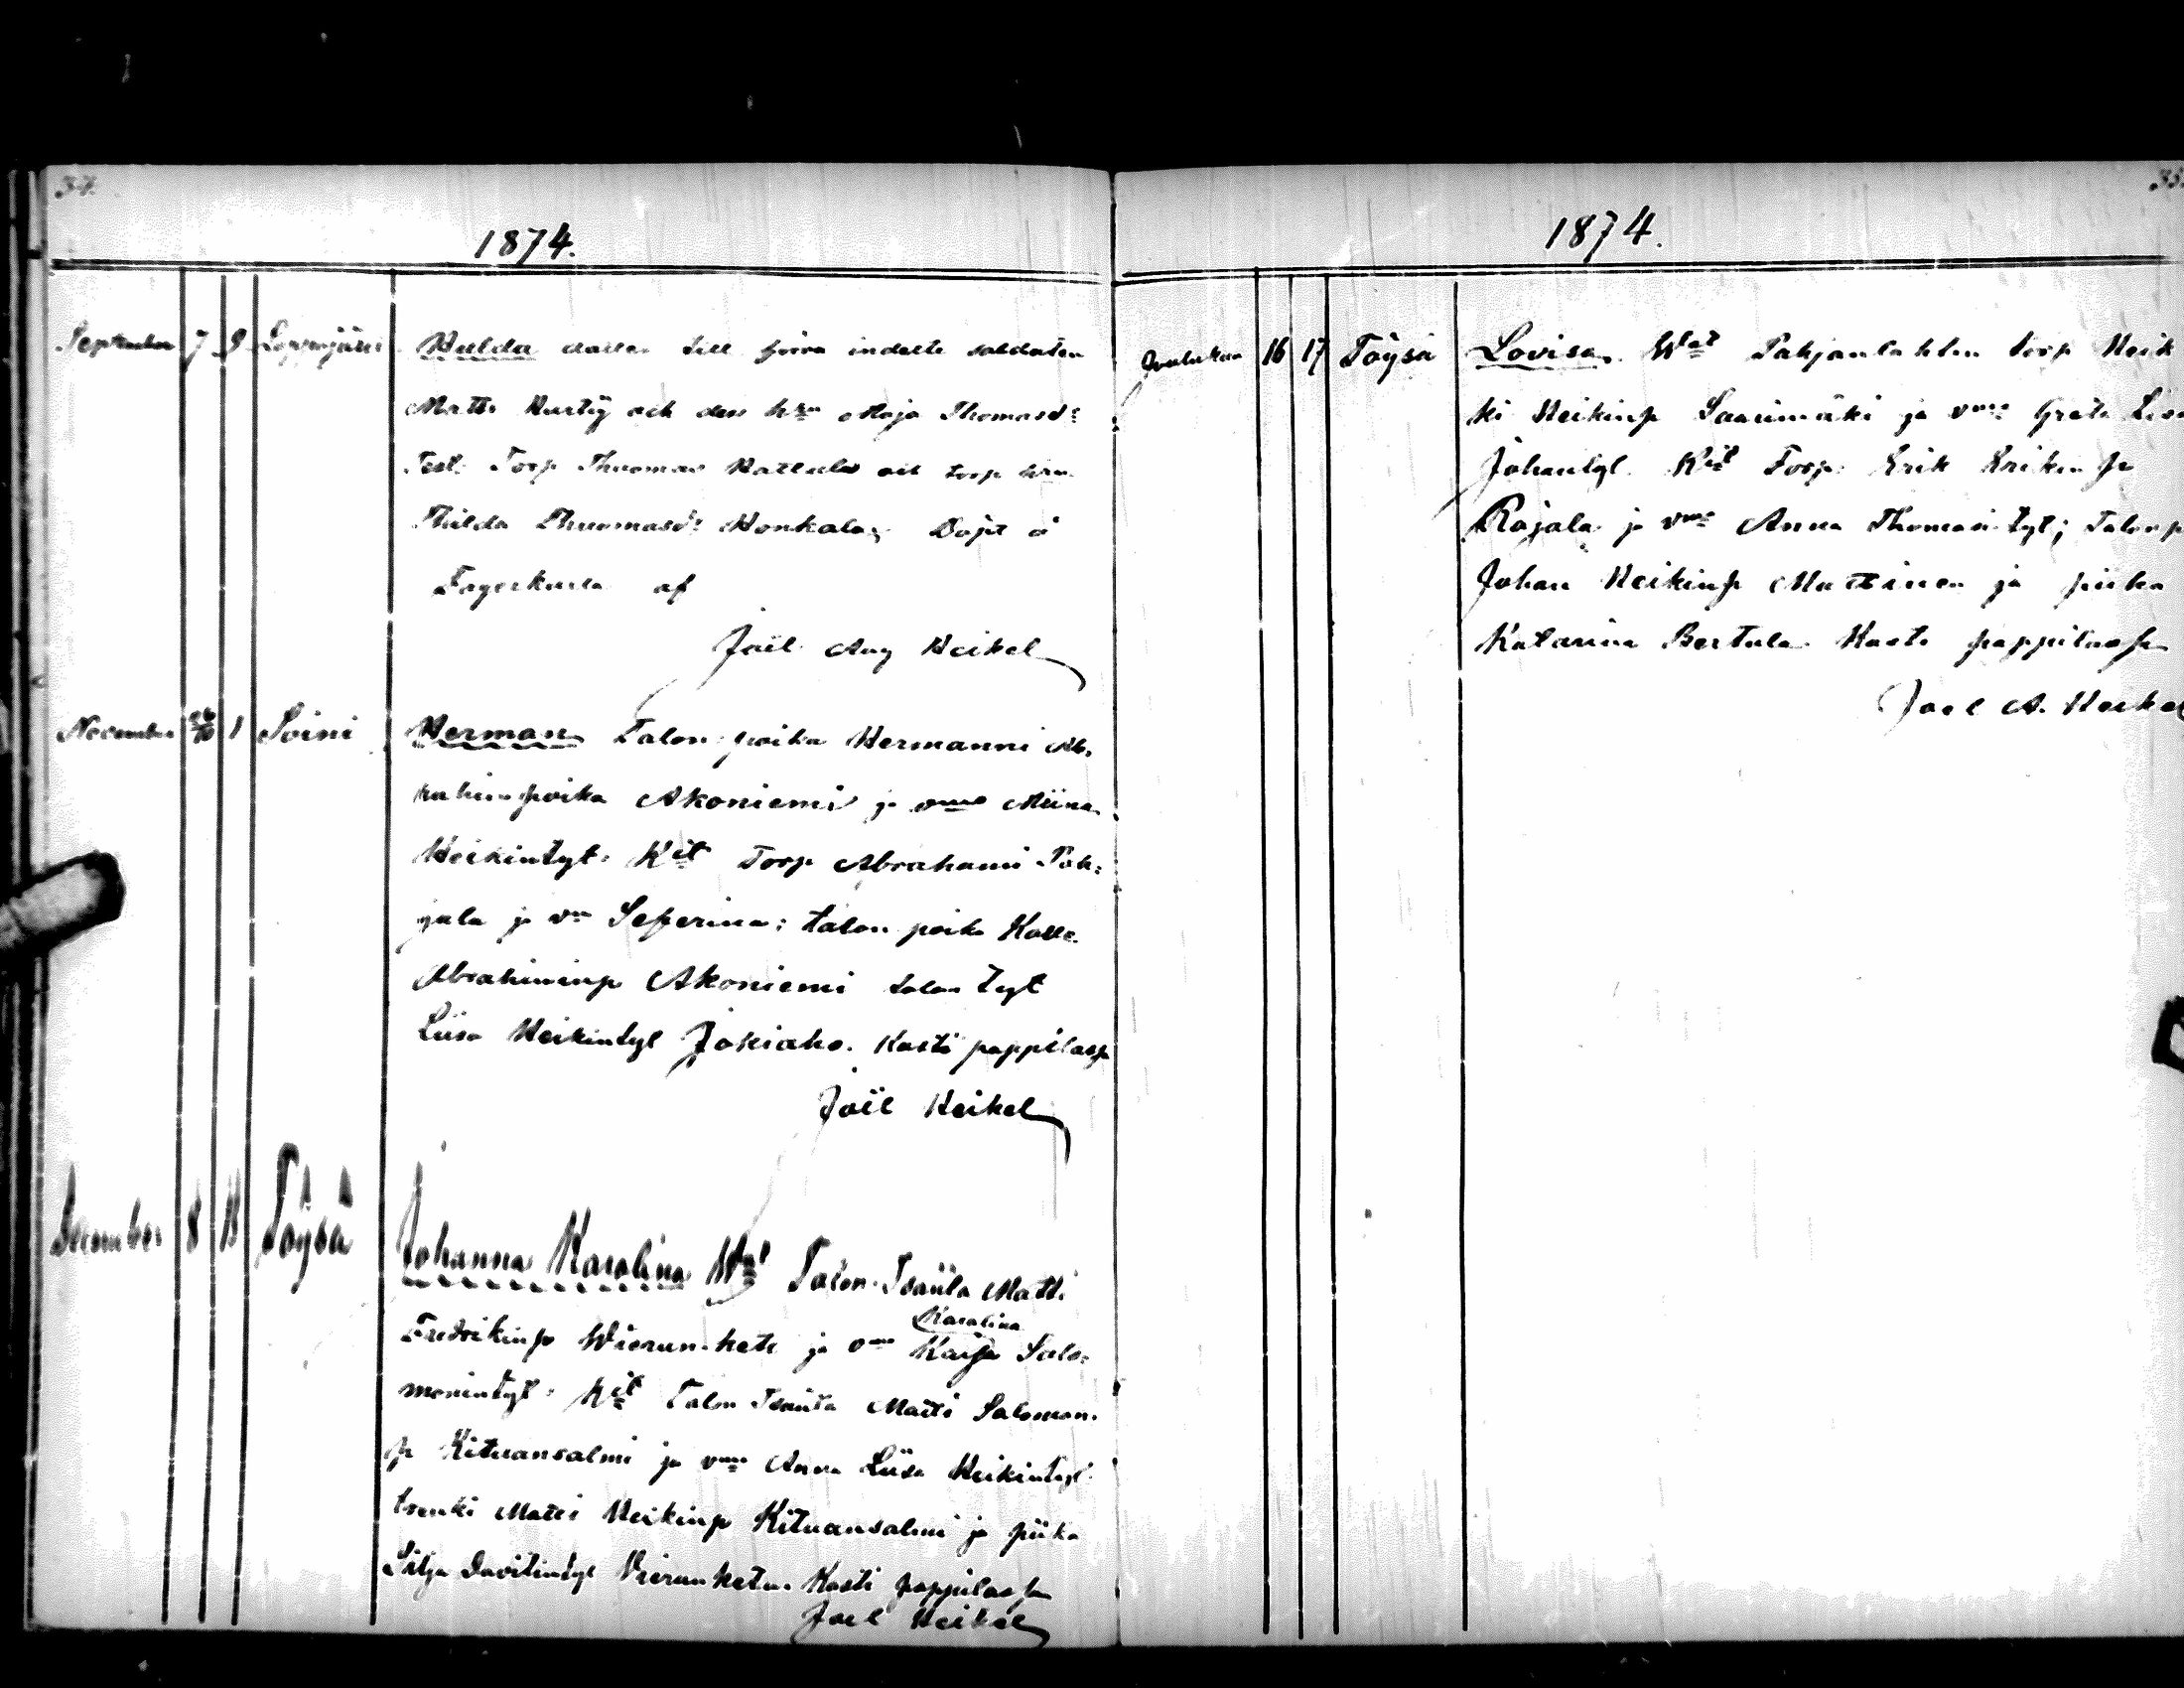 34.
1874.
September 7 9 Lappajärvi Hulda dotter till förra indelte soldaten
Matts Hurtig och dess h:u Maja Thomasd:r
Test: Torp Thuomas Kattula och torp h:u
Thilda Thuomasd:r Honkala; Döpt å
Fagerkulla af
Joël Aug Heikel
November 26/10 1 Soini Herman Talon poika Hermanni Ab,
rahinpoika Akoniemi ja vmo Miina
Heikintyt: Kit Torp Abrahami Poh:
jala ja vm Seferina; talon poika Kalle
Abrahiminp Akoniemi talon tyt
Liisa Heikintyt Jokiaho. Kasti pappilassa
Joël Heikel
December 8 13 Töysä Johanna Karolina Wat Talon Isäntä Matti
Karolina
Fredrikinp Wierunketo ja vmo Kaisa Salo:
monintyt: Kit Talon Isäntä Matti Salomon.
p Kituansalmi ja vmo Anna Liisa Heikintyt
trenki Matti Heikinp Kituansalmi ja piika
Silja Davitintyt Vierunketo. Kasti pappilassa
Joel Heikel
35.
1874.
Joulukuu 16 17 Töysä Lovisa. Wat Pohjanlahden torp Heik
ki Heikinp Saarimäki ja vmo Greta Lisa
Johantyt. Kit Torp: Erik Erikin p
Rajala ja vmo Anna Thomasi tyt; Talon p
Johan Heikinp Mattinen ja piika
Katarina Bertula. Kaste pappilassa
Joel A. Heikel